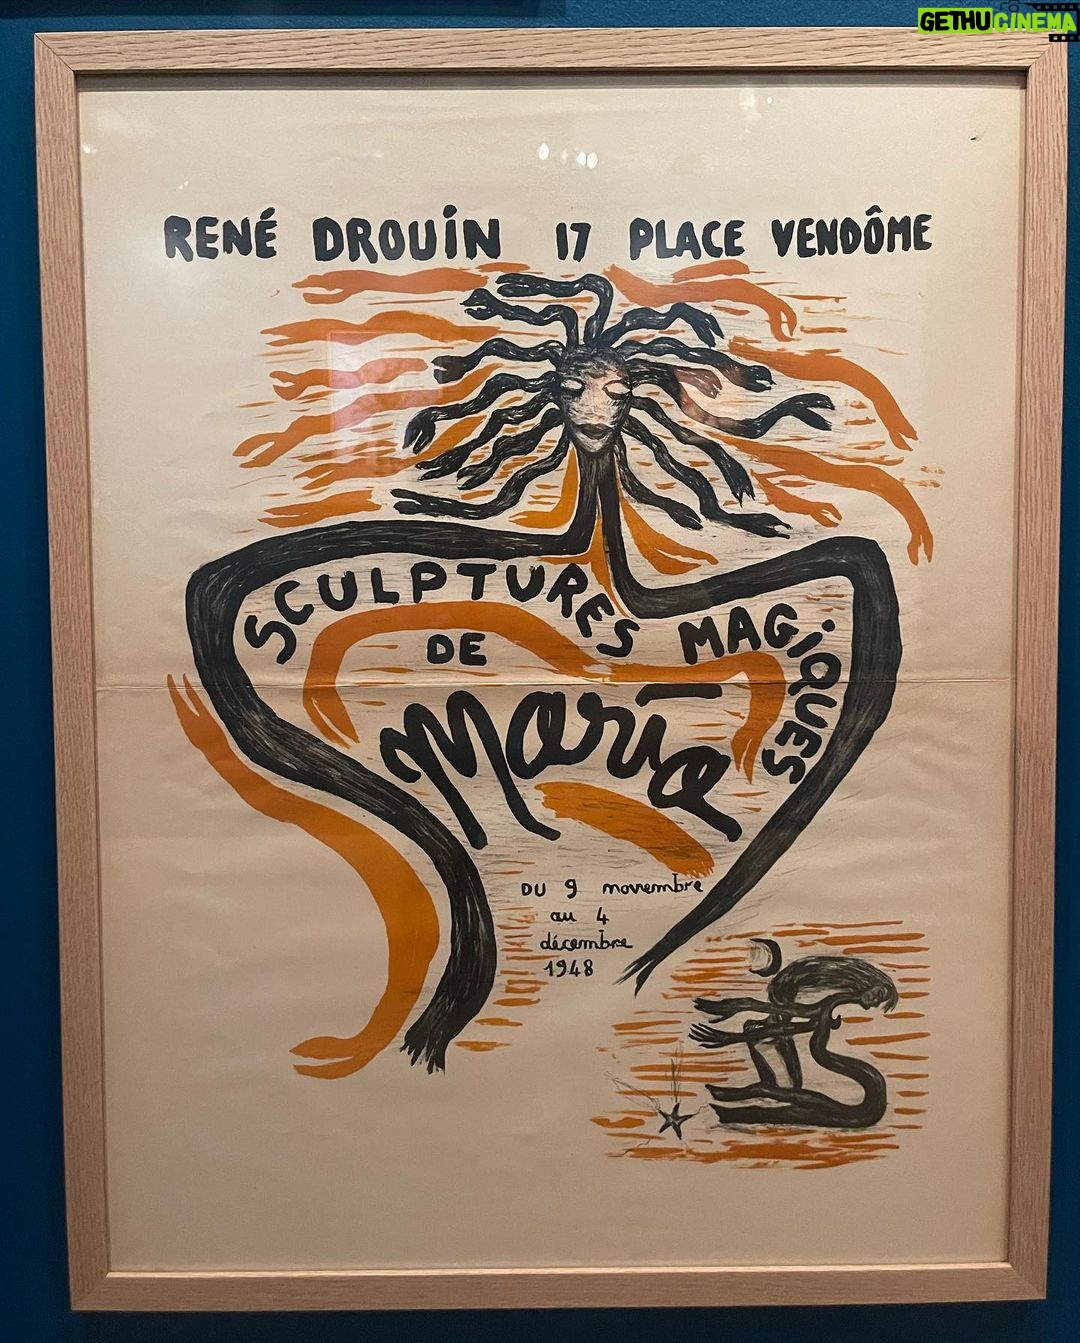 GETHUCINEMA
RENÉ DROUIN 17 PLACE VENDÔME
SCULPTURES MAGIQUES
DE
Maria
DU 9 novembre
au 4
décembre
1948